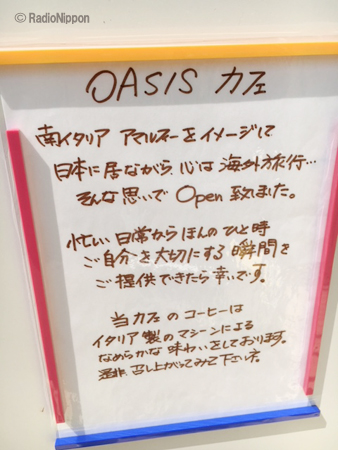 © RadioNippon
OASIS カフェ
南イタリア アマルフィーをイメージして
日本に居ながら、心は海外旅行…
そんな思いで Open 致ました。
忙しい日常からほんのひと時
ご自分を大切にする瞬間を
ご提供できたら幸いです。
当カフェのコーヒーは
イタリア製のマシーンによる
なめらかな味わいをしております。
是非召し上がってみて下さい